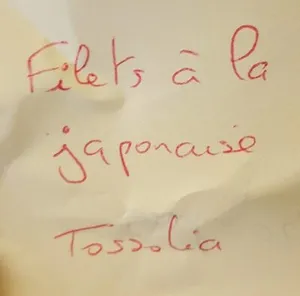 Filets à la
japonaise
Tossolia